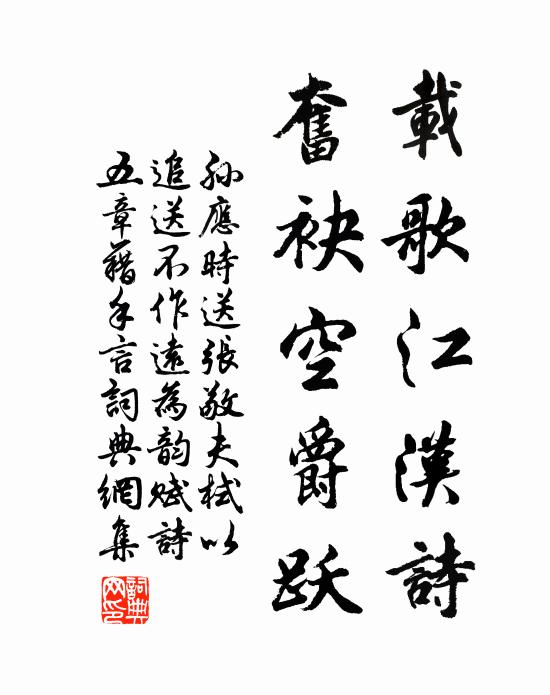 載歌江漢詩
奮袂空爵躍
孫應時送張敬夫栻以
追送不作遠為韵賦詩
五章藉手言詞典網集
詞典網印